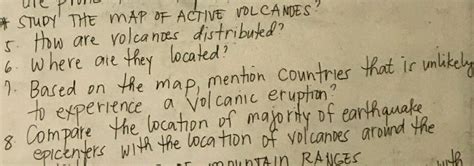 * STUDY THE MAP OF ACTIVE VOLCANOES?
5. How are volcanoes distributed?
6. Where are they located?
7. Based on the map, mention countries that is unlikely
to experience a volcanic eruption?
8. Compare the location of majority of earthquake
epicenters with the location of volcanoes around the
MOUNTAIN RANGES with